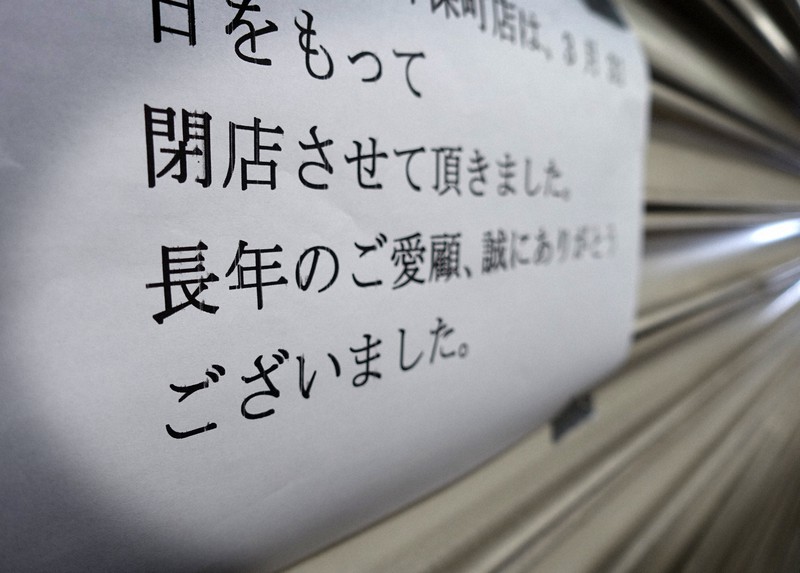 町店は、3月
日をもって
閉店させて頂きました。
長年のご愛顧、誠にありがとう
ございました。